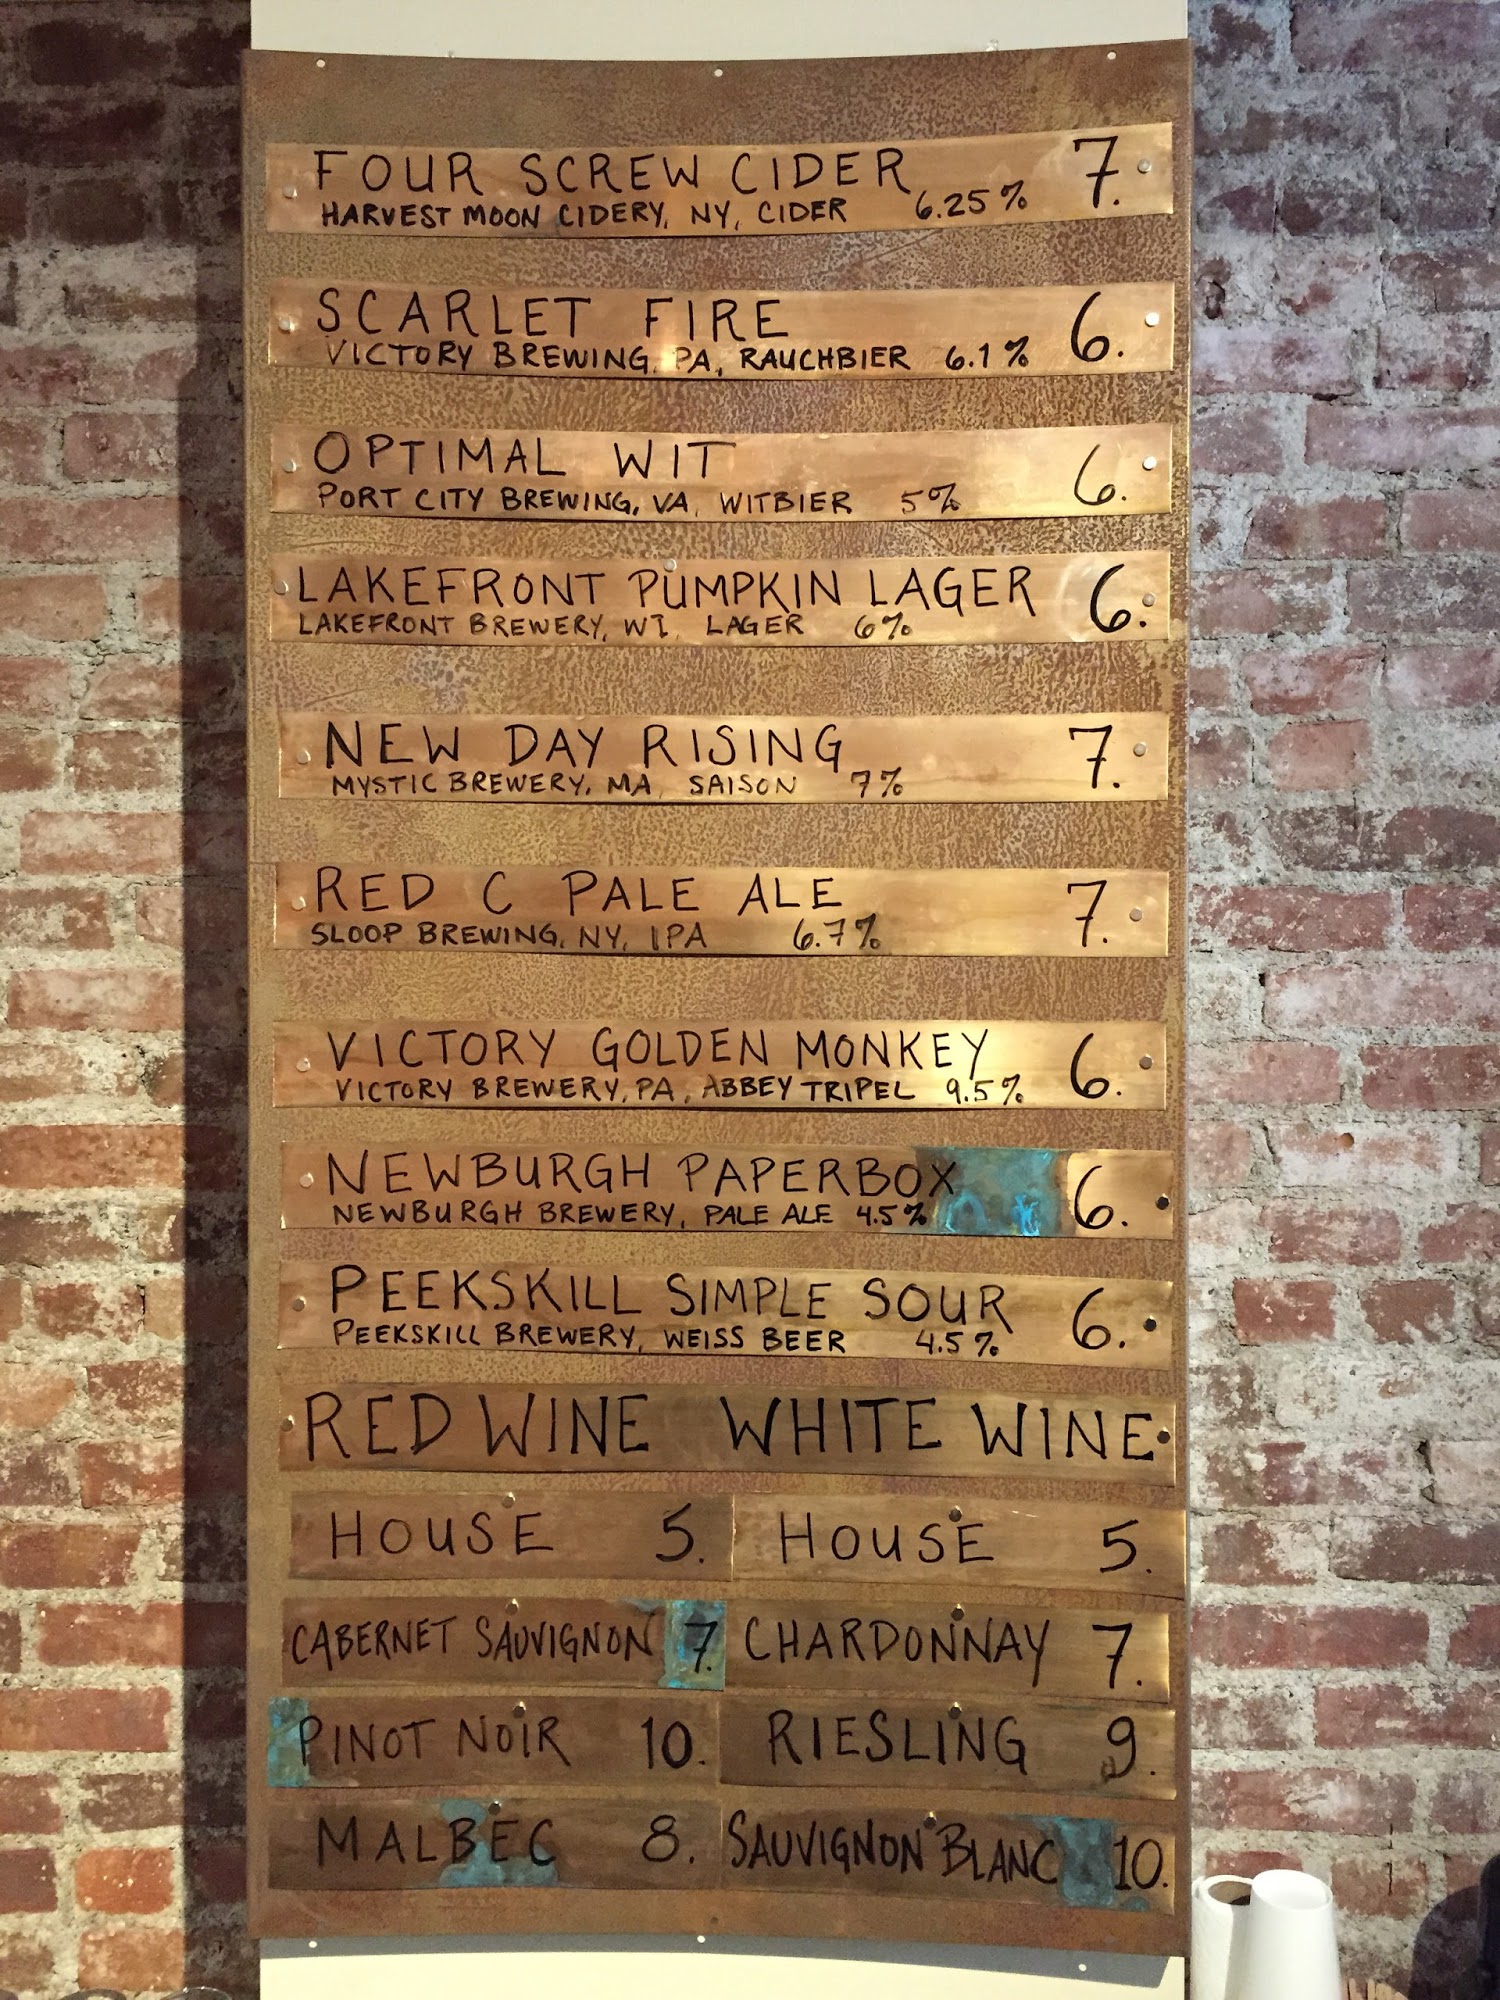 FOUR SCREW CIDER 7.
HARVEST MOON CIDERY, NY, CIDER 6.25%
SCARLET FIRE 6.
VICTORY BREWING, PA, RAUCHBIER 6.1%
OPTIMAL WIT 6.
PORT CITY BREWING, VA, WITBIER 5%
LAKEFRONT PUMPKIN LAGER 6.
LAKEFRONT BREWERY, WI, LAGER 6%
NEW DAY RISING 7.
MYSTIC BREWERY, MA, SAISON 7%
RED C PALE ALE 7.
SLOOP BREWING, NY, IPA 6.7%
VICTORY GOLDEN MONKEY 6.
VICTORY BREWERY, PA, ABBEY TRIPEL 9.5%
NEWBURGH PAPERBOX 6.
NEWBURGH BREWERY, PALE ALE 4.5%
PEEKSKILL SIMPLE SOUR 6.
PEEKSKILL BREWERY, WEISS BEER 4.5%
RED WINE WHITE WINE
HOUSE 5. HOUSE 5.
CABERNET SAUVIGNON 7. CHARDONNAY 7.
PINOT NOIR 10. RIESLING 9.
MALBEC 8. SAUVIGNON BLANC 10.